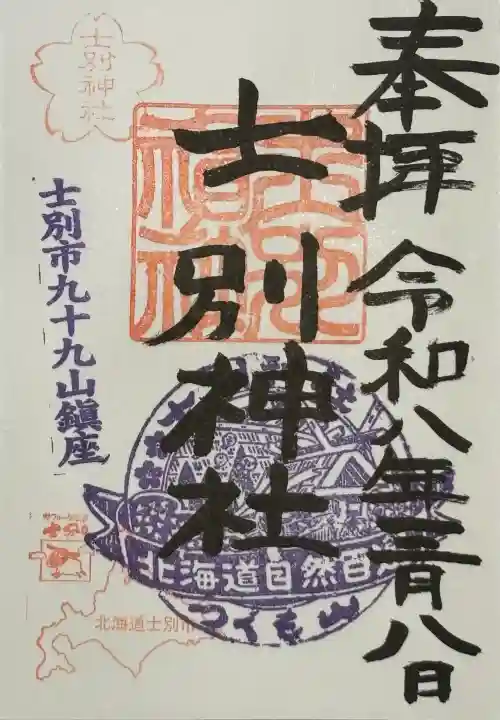 奉拝
令和八年二月八日
士別神社
士別神社
士別市九十九山鎮座
北海道自然百選
つくも山
北海道士別市